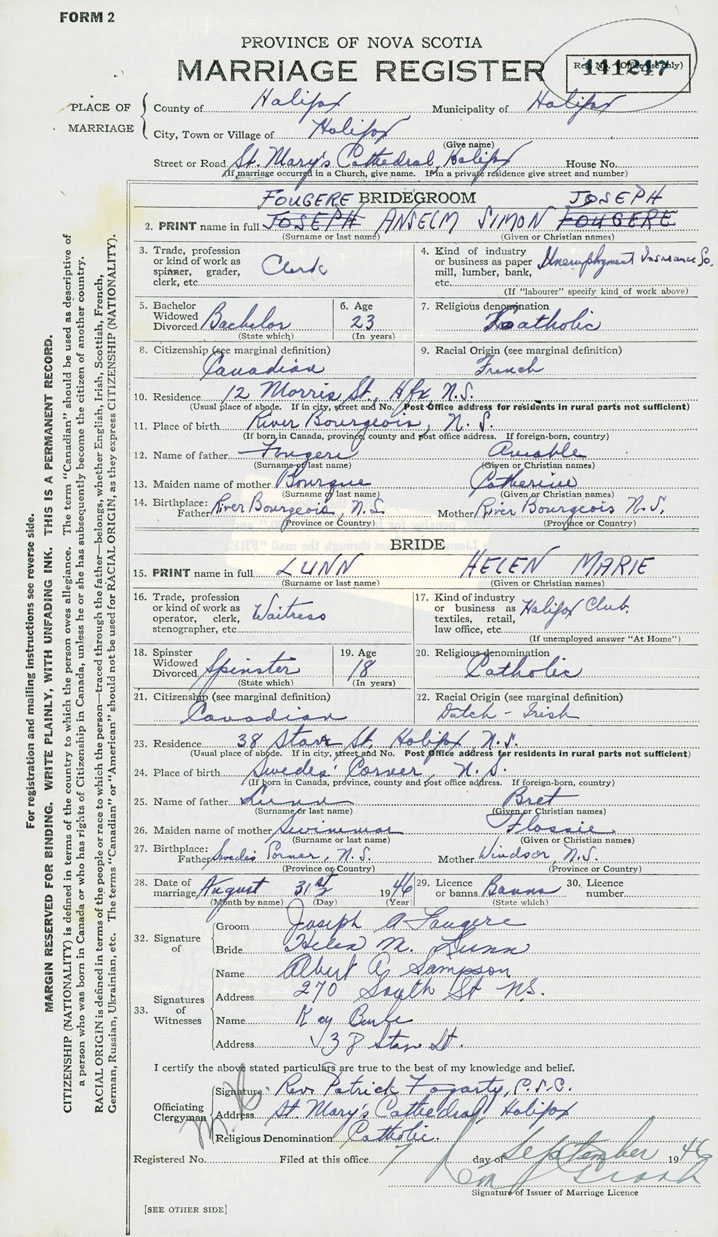 FORM 2
PROVINCE OF NOVA SCOTIA
MARRIAGE REGISTER
141247
PLACE OF MARRIAGE
County of Halifax Municipality of Halifax
City, Town or Village of Halifax
(Give name)
Street or Road St. Mary's Cathedral, Halifax House No.
(If marriage occurred in a Church, give name. If in a private residence give street and number)
FOUGERE BRIDEGROOM JOSEPH
2. PRINT name in full JOSEPH ANSELM SIMON FOUGERE
(Surname or last name) (Given or Christian names)
3. Trade, profession or kind of work as spinner, grader, clerk, etc. Clerk
4. Kind of industry or business as paper mill, lumber, bank, etc. Unemployment Insurance Co.
(If "labourer" specify kind of work above)
5. Bachelor Widowed Divorced Bachelor
(State which)
6. Age 23
(In years)
7. Religious denomination Catholic
8. Citizenship (see marginal definition) Canadian
9. Racial Origin (see marginal definition) French
10. Residence 12 Morris St, Hfx, N.S.
(Usual place of abode. If in city, street and No. Post Office address for residents in rural parts not sufficient)
11. Place of birth River Bourgeois, N.S.
(If born in Canada, province, county and post office address. If foreign-born, country)
12. Name of father Fougere Amable
(Surname or last name) (Given or Christian names)
13. Maiden name of mother Bourque Catherine
(Surname or last name) (Given or Christian names)
14. Birthplace: Father River Bourgeois, N.S. Mother River Bourgeois N.S.
(Province or Country) (Province or Country)
BRIDE
15. PRINT name in full LUNN HELEN MARIE
(Surname or last name) (Given or Christian names)
16. Trade, profession or kind of work as operator, clerk, stenographer, etc. Waitress
17. Kind of industry or business as textiles, retail, law office, etc. Halifax Club.
(If unemployed answer "At Home")
18. Spinster Widowed Divorced Spinster
(State which)
19. Age 18
(In years)
20. Religious denomination Catholic
21. Citizenship (see marginal definition) Canadian
22. Racial Origin (see marginal definition) Dutch - Irish
23. Residence 38 Starr St, Halifax N.S.
(Usual place of abode. If in city, street and No. Post Office address for residents in rural parts not sufficient)
24. Place of birth Swedes' Corner, N.S.
(If born in Canada, province, county and post office address. If foreign-born, country)
25. Name of father Lunn Bret
(Surname or last name) (Given or Christian names)
26. Maiden name of mother Flossie
(Surname or last name) (Given or Christian names)
27. Birthplace: Father Swedes Corner, N.S. Mother Windsor, N.S.
(Province or Country) (Province or Country)
28. Date of marriage August 31st 1946
(Month by name) (Day) (Year)
29. Licence or banns Banns
(State which)
30. Licence number
32. Signature of
Groom Joseph A Fougere
Bride Helen M. Lunn
33. Signatures of Witnesses
Name Albert A Sampson
Address 270 South St N.S.
Name Kay Burke
Address 38 Starr St.
I certify the above stated particulars are true to the best of my knowledge and belief.
Officiating Clergyman
Signature Rev. Patrick Fogarty, C.S.C.
Address St. Mary's Cathedral, Halifax
Religious Denomination Catholic.
Registered No. Filed at this office 7 day of September 1946
Signature of Issuer of Marriage Licence
[SEE OTHER SIDE]
For registration and mailing instructions see reverse side.
MARGIN RESERVED FOR BINDING. WRITE PLAINLY, WITH UNFADING INK. THIS IS A PERMANENT RECORD.
CITIZENSHIP (NATIONALITY) is defined in terms of the country to which the person owes allegiance. The term "Canadian" should be used as descriptive of
a person who was born in Canada or who has rights of Citizenship in Canada, unless he or she has subsequently become the citizen of another country.
RACIAL ORIGIN is defined in terms of the people or race to which the person—traced through the father—belongs, whether English, Irish, Scottish, French,
German, Russian, Ukrainian, etc. The terms "Canadian" or "American" should not be used for RACIAL ORIGIN, as they express CITIZENSHIP (NATIONALITY).